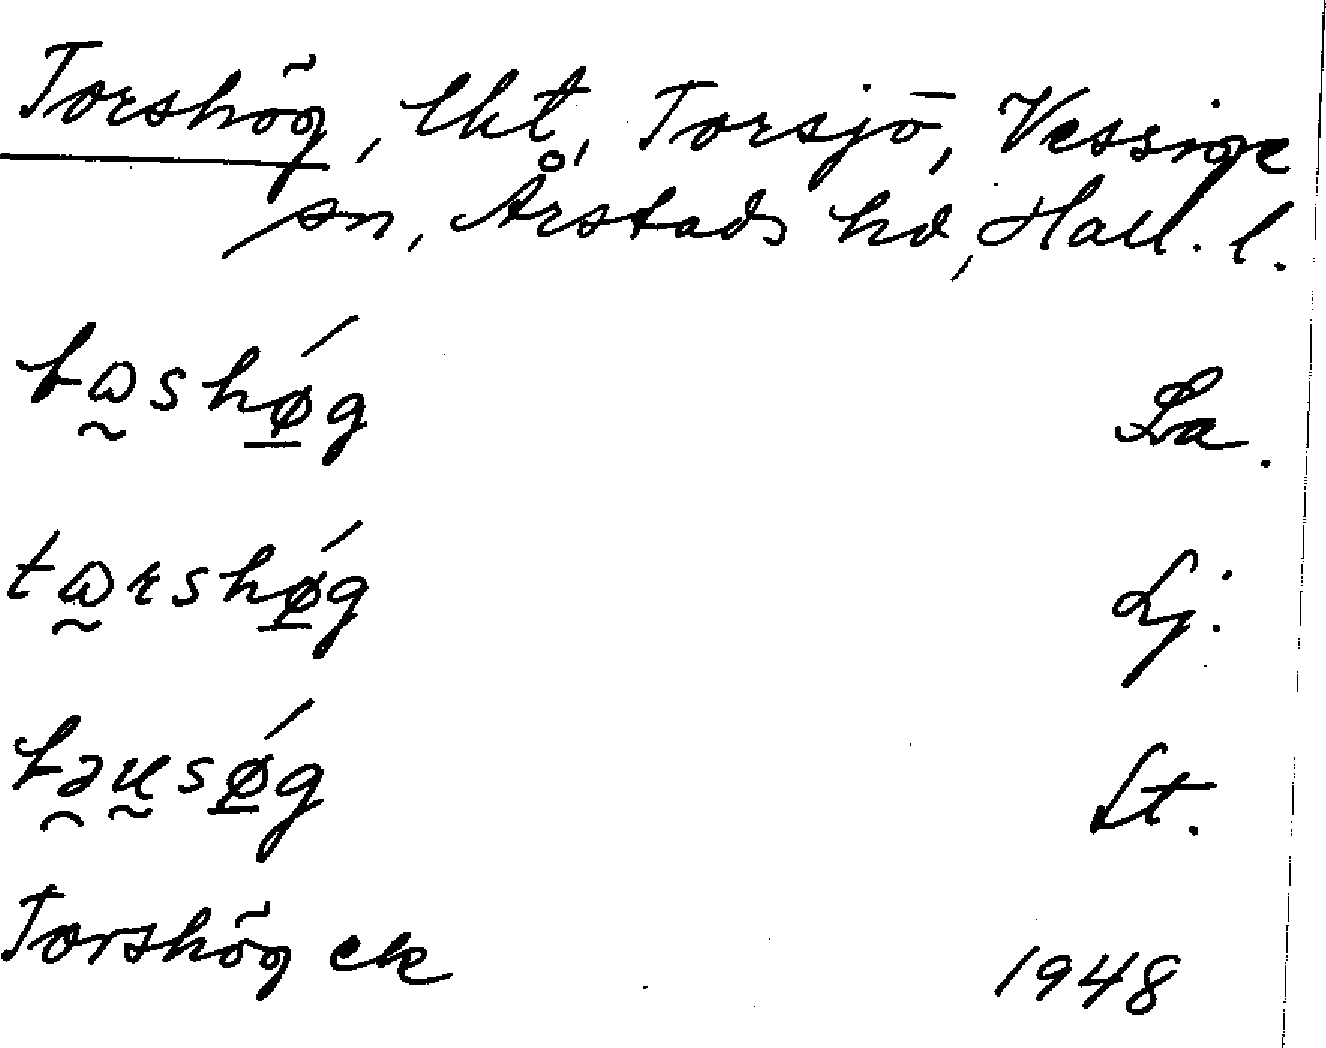 Torshög, lkt, Torsjö, Vessige
sn, Årstads hd, Hall. l.
tɷshǿg La.
tɷrshǿg Lj.
sǿg St.
Torshög ek 1948